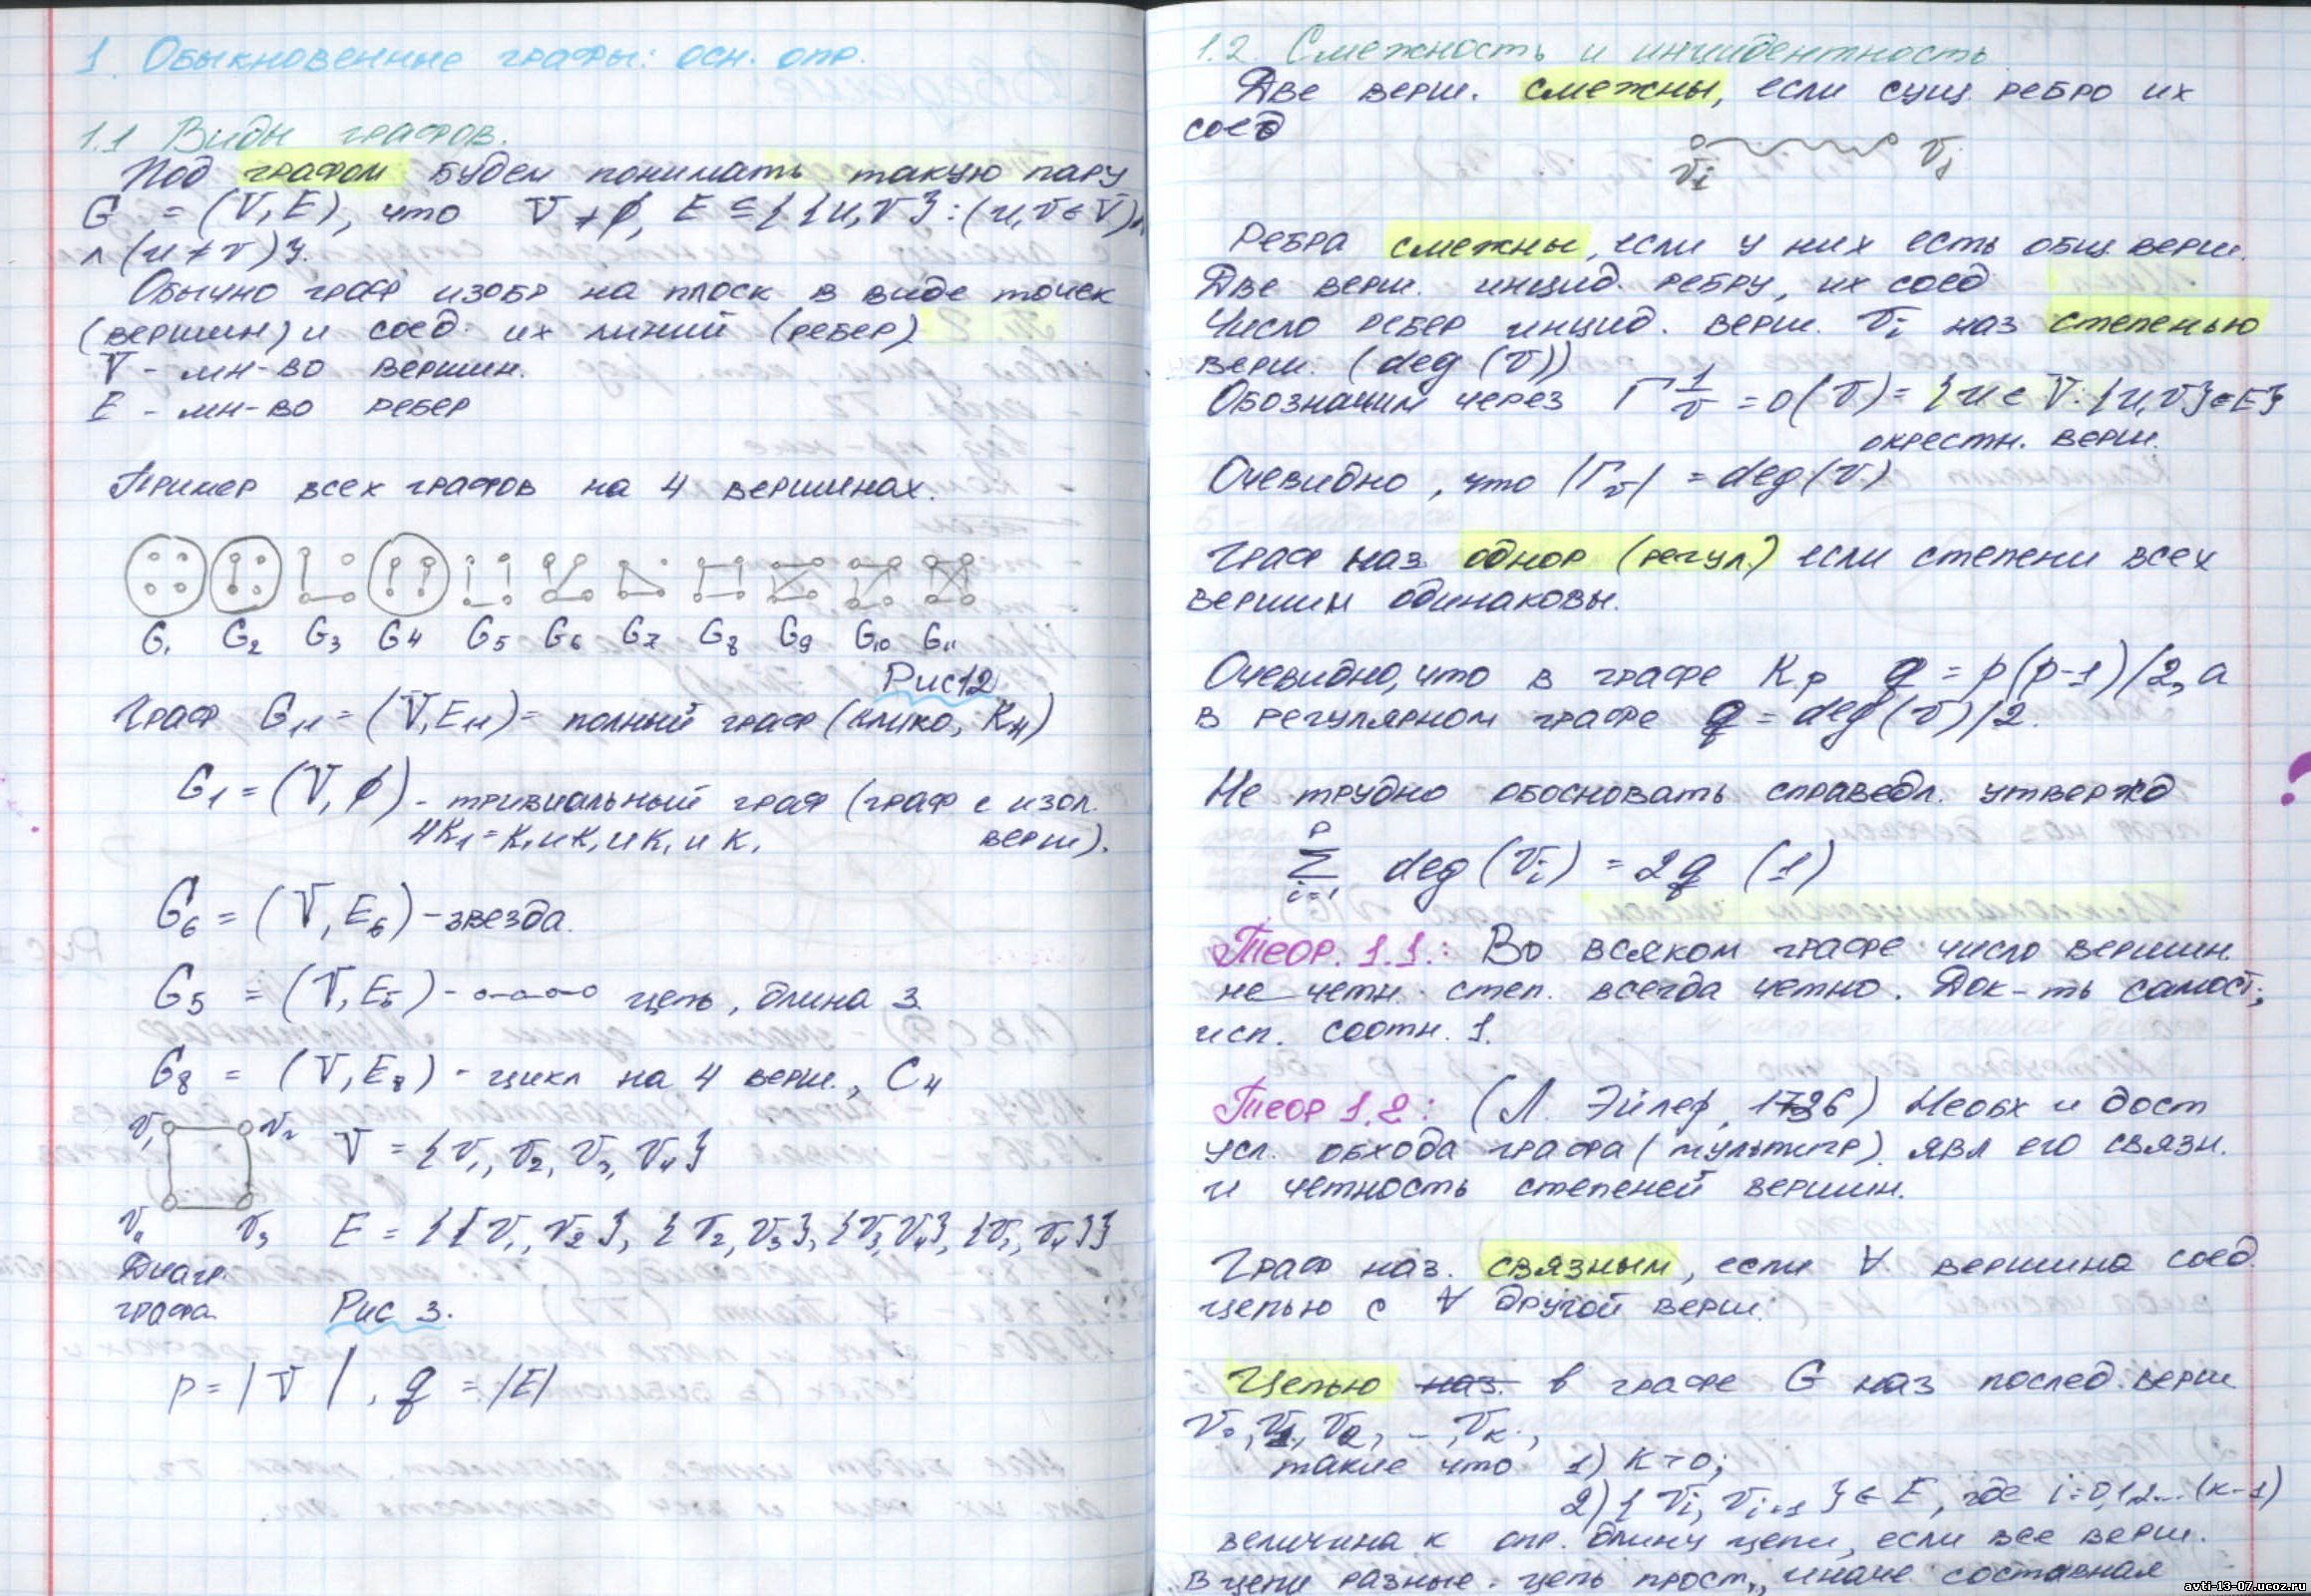 1. Обыкновенные графы: осн. опр.
1.1 Виды графов.
Под графом будем понимать такую пару
G = (V, E), что V ≠ ∅, E ⊆ { {u, v} : (u, v ∈ V) ∧
∧ (u ≠ v) }.
Обычно граф изобр на плоск в виде точек
(вершин) и соед. их линий (ребер)
V - мн-во вершин.
E - мн-во ребер
Пример всех графов на 4 вершинах.
G₁ G₂ G₃ G₄ G₅ G₆ G₇ G₈ G₉ G₁₀ G₁₁
Рис 1.2
Граф G₁₁ = (V, E₁₁) = полный граф (клико, K₄)
G₁ = (V, ∅) - тривиальный граф (граф с изол.
4K₁ = K₁ и K₁ и K₁ и K₁ верш).
G₆ = (V, E₆) - звезда.
G₅ = (V, E₅) - o-o-o-o цепь, длина 3
G₈ = (V, E₈) - цикл на 4 верш., C₄
v₁ v₂ V = {v₁, v₂, v₃, v₄}
v₄ v₃ E = { {v₁, v₂}, {v₂, v₃}, {v₃, v₄}, {v₁, v₄} }
Диагр.
графа Рис 3.
p = |V|, q = |E|
1.2. Смежность и инцидентность
Две верш. смежны, если сущ. ребро их
соед
vᵢ vⱼ
Ребра смежны, если у них есть общ. верш.
Две верш. инцид. ребру, их соед
Число ребер инцид. верш. vᵢ наз степенью
верш. (deg (v))
Обозначим через Γ¹ᵥ = O(v) = {u ∈ V : {u, v} ∈ E}
окрестн. верш.
Очевидно, что |Γᵥ| = deg(v)
Граф наз. однор (регул.) если степени всех
вершин одинаковы.
Очевидно, что в графе Kₚ q = p(p-1)/2, а
в регулярном графе q = deg(v)/2.
Не трудно обосновать справедл. утвержд
p
Σ deg(vᵢ) = 2q (1)
i=1
Теор. 1.1.: Во всяком графе число вершин
не четн. степ. всегда четно. Док-ть самост.,
исп. соотн. 1.
Теор 1.2: (Л. Эйлер, 1736) Необх и дост
усл. обхода графа (мультигр). явл его связн.
и четность степеней вершин.
Граф наз. связным, если ∀ вершина соед.
цепью с ∀ другой верш.
Цепью наз. в графе G наз послед. верш
v₀, v₁, v₂, ..., vₖ.,
такие что 1) k > 0;
2) {vᵢ, vᵢ₊₁} ∈ E, где i = 0,1,2...(k-1)
величина k опр. длину цепи, если все верш.
в цепи разные. цепь прост., иначе составная
avti-13-07.ucoz.ru